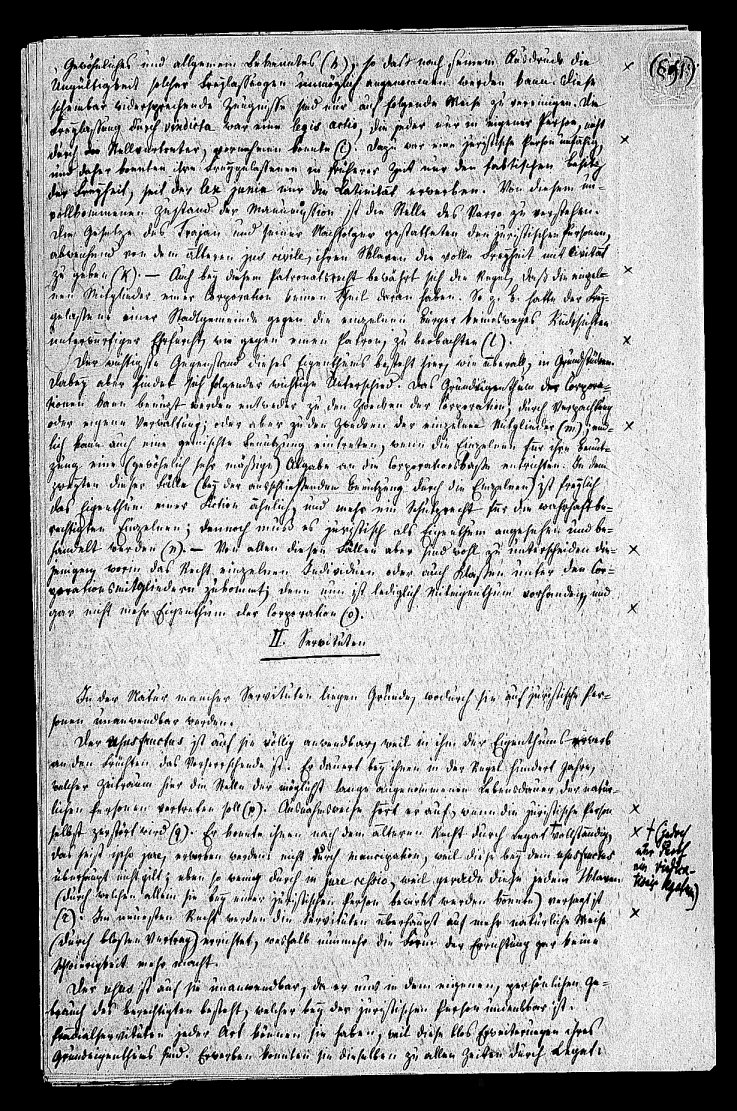 (891)
Gewöhnliches und allgemein Bekanntes (h); so daß nach seinem Ausdruck die
Ungültigkeit solcher Freylassungen unmöglich angenommen werden kann. Diese
scheinbar widersprechende Zeugnisse sind nur auf folgende Weise zu vereinigen. Die
Freylassung durch vindicta war eine legis actio, die jeder nur in eigener Person, nicht
durch Stellvertreter, vornehmen konnte (i). Dazu war eine juristische Person unfähig,
und daher konnten ihre Freygelassenen in früherer Zeit nur den faktischen Besitz
der Freyheit, seit der lex junia nur die Latinität erwerben. Von diesem un-
vollkommenen Zustand der Manumission ist die Stelle des Varro zu verstehen.
Die Gesetze des Trajan und seiner Nachfolger gestatteten den juristischen Personen,
abweichend von dem älteren jus civile, ihren Sklaven die volle Freyheit mit Civität
zu geben (k). — Auch bey diesem Patronatsrecht bewährt sich die Regel, daß die einzel-
nen Mitglieder einer Corporation keinen Theil daran haben. So z. B. hatte der Frey-
gelassene einer Stadtgemeinde gegen die einzelnen Bürger keineswegs Rücksichten
unterwürfiger Ehrfurcht, wie gegen einen Patron, zu beobachten (l).
Der wichtigste Gegenstand dieses Eigenthums besteht hier, wie überall, in Grundstücken.
Dabey aber findet sich folgender wichtige Unterschied. Das Grundeigenthum der Corpora-
tionen kann benutzt werden entweder zu den Zwecken der Corporation, durch Verpachtung
oder eigene Verwaltung; oder aber zu den Zwecken der einzelnen Mitglieder (m); end-
lich kann auch eine gemischte Benutzung eintreten, wenn die Einzelnen für ihre Benut-
zung eine (gewöhnlich sehr mäßige) Abgabe an die Corporationskasse entrichten. In dem
zweyten dieser Fälle (bey der ausschließenden Benutzung durch die Einzelnen) ist freylich
das Eigenthum einer Fiction ähnlich, und mehr ein Schutzrecht für die wahrhaft be-
rechtigten Einzelnen; dennoch muß es juristisch als Eigenthum angesehen und be-
handelt werden (n). — Von allen diesen Fällen aber sind wohl zu unterscheiden die-
jenigen worin das Recht einzelnen Individuen oder auch Klassen unter den Cor-
porationsmitgliedern zukommt; denn nun ist lediglich Miteigenthum vorhanden, und
gar nicht mehr Eigenthum der Corporation (o).
II. Servituten
In der Natur mancher Servituten liegen Gründe, wodurch sie auf juristische Per-
sonen unanwendbar werden.
Der ususfructus ist auf sie völlig anwendbar, weil in ihm der Eigenthums erwerb
an den Früchten das Vorherrschende ist. Er dauert bey ihnen in der Regel hundert Jahre,
welcher Zeitraum hier die Stelle der möglichst lange angenommenen Lebensdauer der natür-
lichen Personen vertreten soll (p). Ausnahmsweise hört er auf, wenn die juristische Person
selbst zerstört wird (q). Er konnte ihnen nach dem älteren Recht durch Legat † vollständig,
das heißt ipso jure, erworben werden: nicht durch mancipation, weil diese bey dem ususfructus
überhaupt nicht gilt; eben so wenig durch in jure cessio, weil gerade diese jedem Sklaven
(durch welchen allein sie bey einer juristischen Person bewirkt werden konnte) versagt ist
(r). Im neuesten Recht werden die Servituten überhaupt auf mehr natürliche Weise
(durch bloßen Vertrag) errichtet, weshalb nunmehr die Form der Errichtung gar keine
Schwierigkeit mehr macht.
Der usus ist auf sie unanwendbar, da er nur in dem eigenen, persönlichen Ge-
brauch des Berechtigten besteht, welcher bey der juristischen Person undenkbar ist.
Prädialservituten jeder Art können sie haben, weil diese blos Erweiterungen ihres
Grundeigenthums sind. Erwerben konnten sie dieselben zu allen Zeiten durch Legat:
† (jedoch